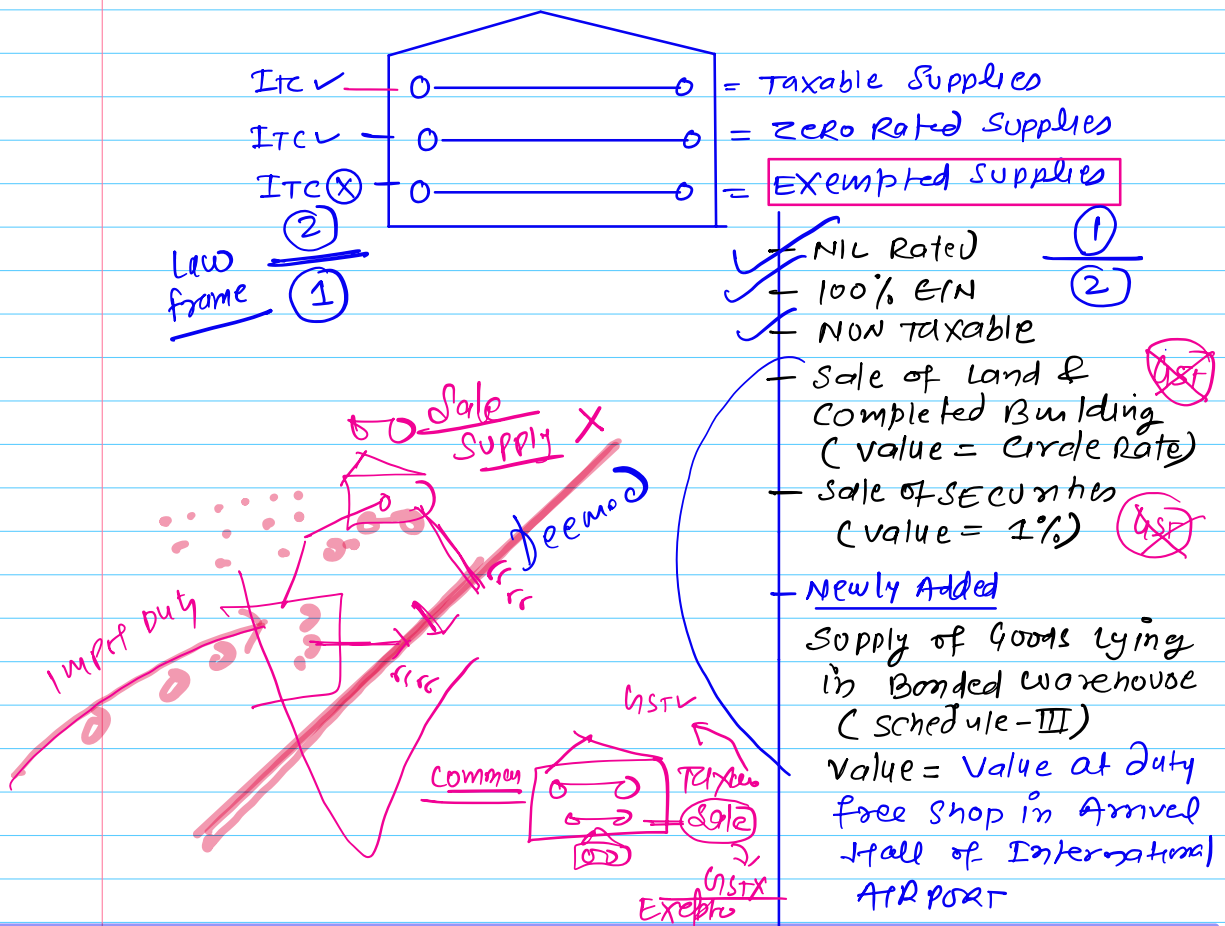 ITC ✓ = Taxable Supplies
ITC ✓ = ZERO Rated Supplies
ITC X = Exempted Supplies
2
1
Law
frame
1
2
- NIL Rated
- 100% E/N
- NON Taxable
- Sale of Land & GST
Completed Building
(Value = Circle Rate)
- Sale of SECURities GST
(value = 1%)
- Newly Added
Supply of Goods lying
in Bonded warehouse
(Schedule-III)
Value = Value at duty
free Shop in Arrival
Hall of International
AIRPORT
Sale
Supply X
Deemed
Import Duty
GST✓
Common
Sale
GSTX